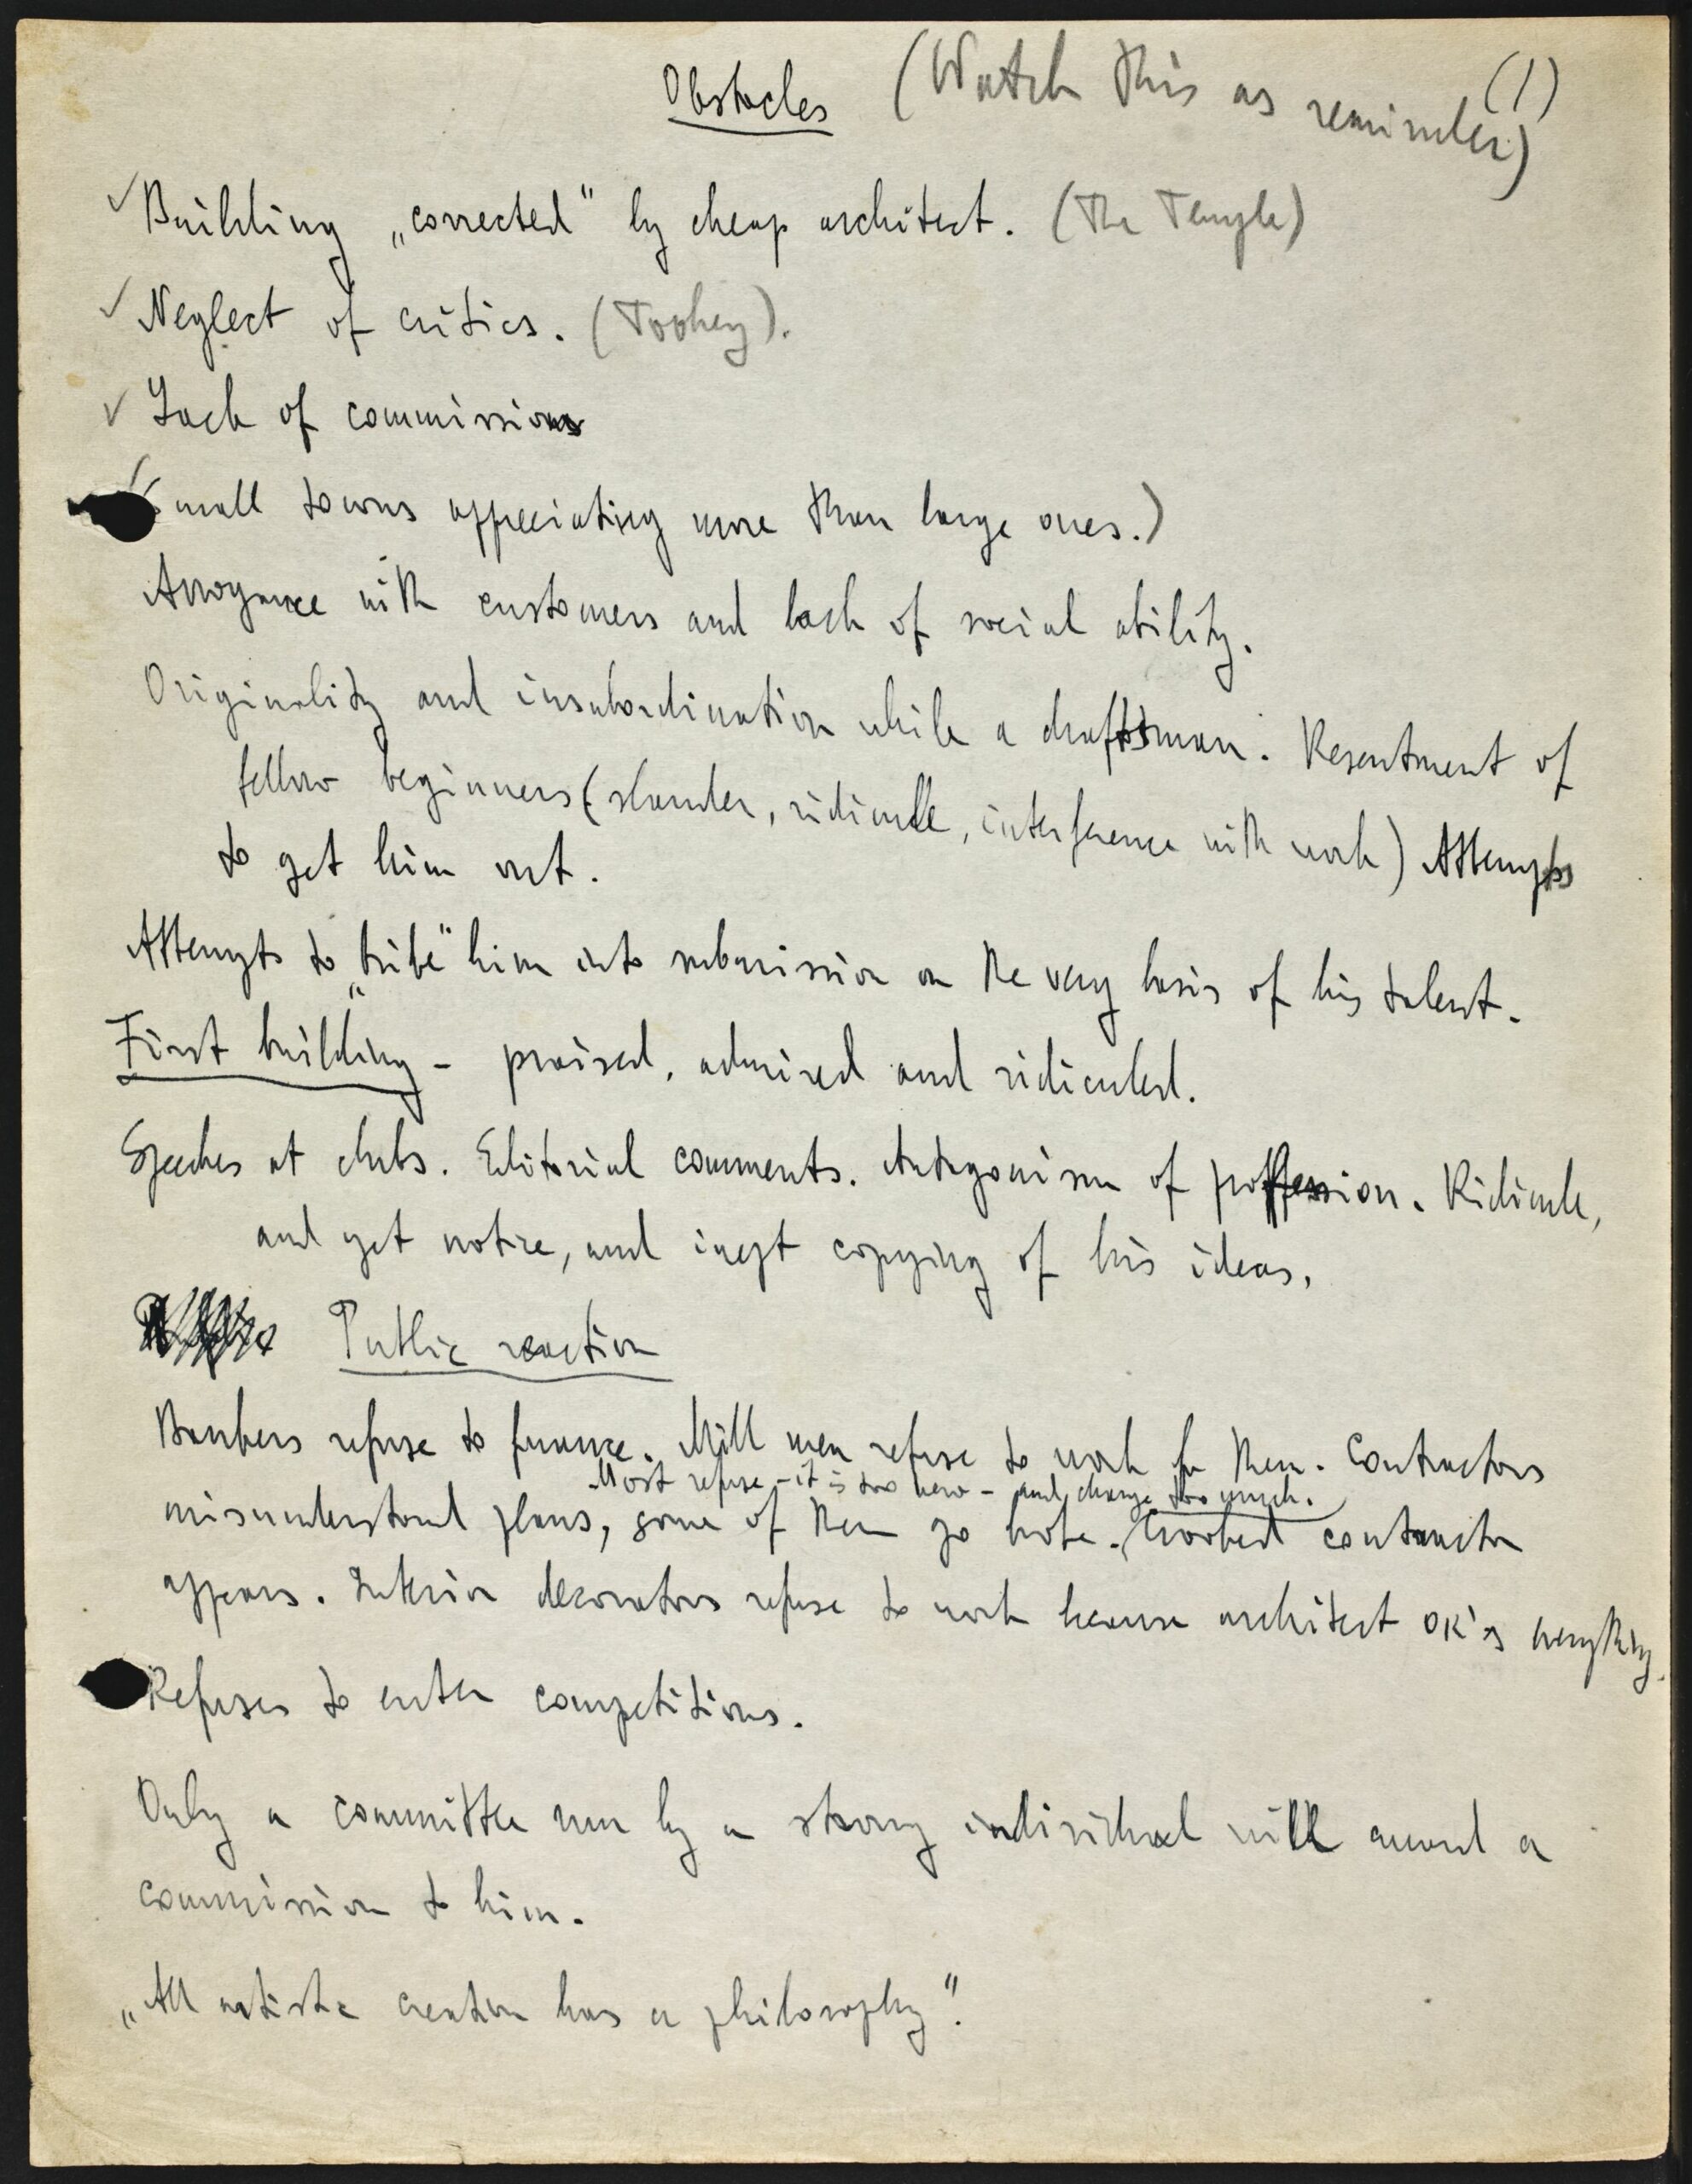 Obstacles (Watch this as reminder) (1)
✓ Building „corrected" by cheap architect. (The Temple)
✓ Neglect of critics. (Toohey).
✓ Lack of commissions
✓ (Small towns appreciating more than large ones.)
Arrogance with customers and lack of social ability.
Originality and insubordination while a draftsman. Resentment of
fellow beginners (slander, ridicule, interference with work) Attempts
to get him out.
Attempts to „bribe" him into submission on the very basis of his talent.
First building – praised, admired and ridiculed.
Speeches at clubs. Editorial comments. Antagonism of proffession. Ridicule,
and yet notice, and inept copying of his ideas.
Public reaction
Bankers refuse to finance. Mill men refuse to work for them. Contractors
Most refuse – it is too new – and charge too much.
misunderstand plans, some of them go broke. (Crooked contractor
appears. Interior decorators refuse to work because architect OK's everything.
Refuses to enter competitions.
Only a committee run by a strong individual will award a
commission to him.
„All artistic creation has a philosophy".